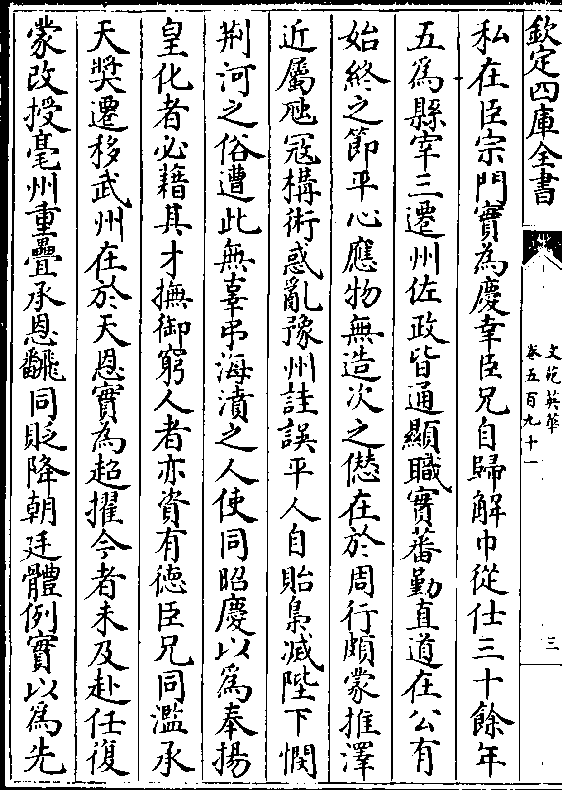 欽定四庫全書
文苑英華
卷五百九十一
三
私在臣宗門實為慶幸臣兄自歸解巾從仕三十餘年
五為縣宰三遷州佐政皆通顯職實蕃勤直道在公有
始終之節平心應物無造次之僽在於周行頗蒙推澤
近屬虺冦構術惑亂豫州詿誤平人自貽梟滅陛下憫
荆河之俗遭此無辜弔海瀆之人使同昭慶以為奉揚
皇化者必藉其才撫御窮人者亦資有德臣兄同濫承
天奬遷移武州在於天恩實為超擢今者未及赴任復
蒙改授亳州重疊承恩飜同貶降朝廷體例實以為先